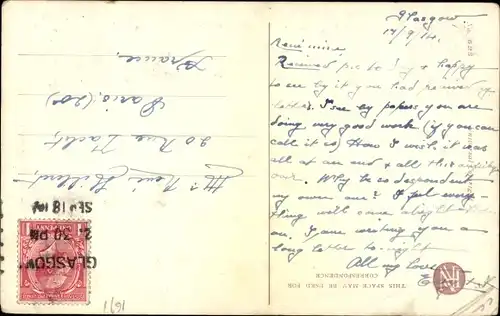 Glasgow
17/9/14.
Received pc to day & happy
to see by it you had received my
letter. I see by papers you are
doing very good work (if you can
call it so) How I wish it was
all at an end & all this
over. Why be so despondent
my own one? I feel every-
thing will come alright
on. I am writing you a
long letter to-night
All my love
THIS SPACE MAY BE USED FOR
CORRESPONDENCE
20 Rue
Paris (20e)
France.
GLASGOW
2. 30 PM
SEP 18 14